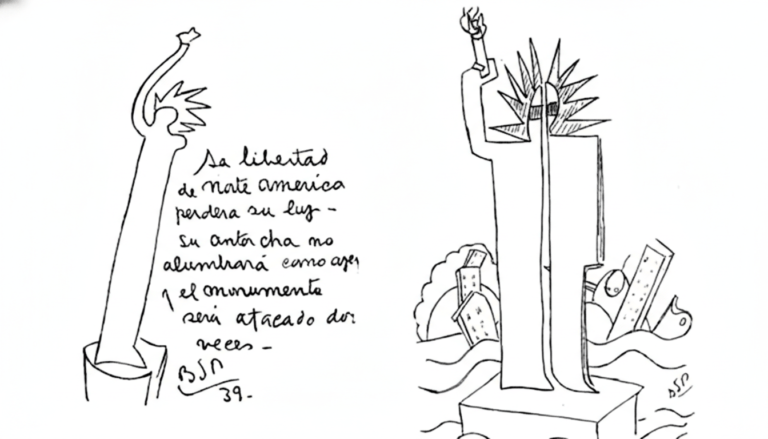 La libertad
de norte america
perdera su luz -
su antorcha no
alumbrará como ayer
y el monumento
será atacado dos
veces -
BSP
39.-
BSP